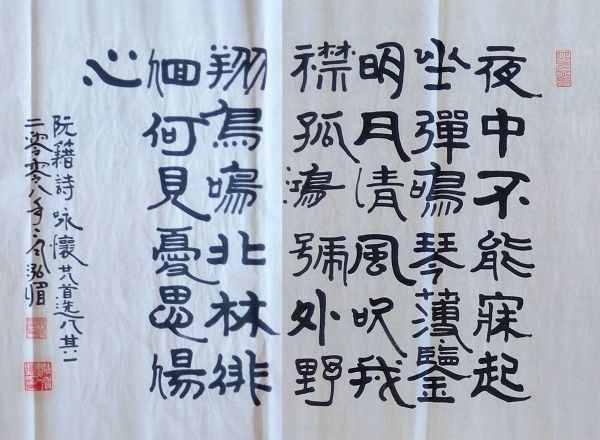 夜中不能寐起
坐彈鳴琴薄鑒
明月清風吹我
襟孤鴻號外野
翔鳥鳴北林徘
徊何見憂思傷
心
阮籍詩咏懷共首选八其一
二零零八年